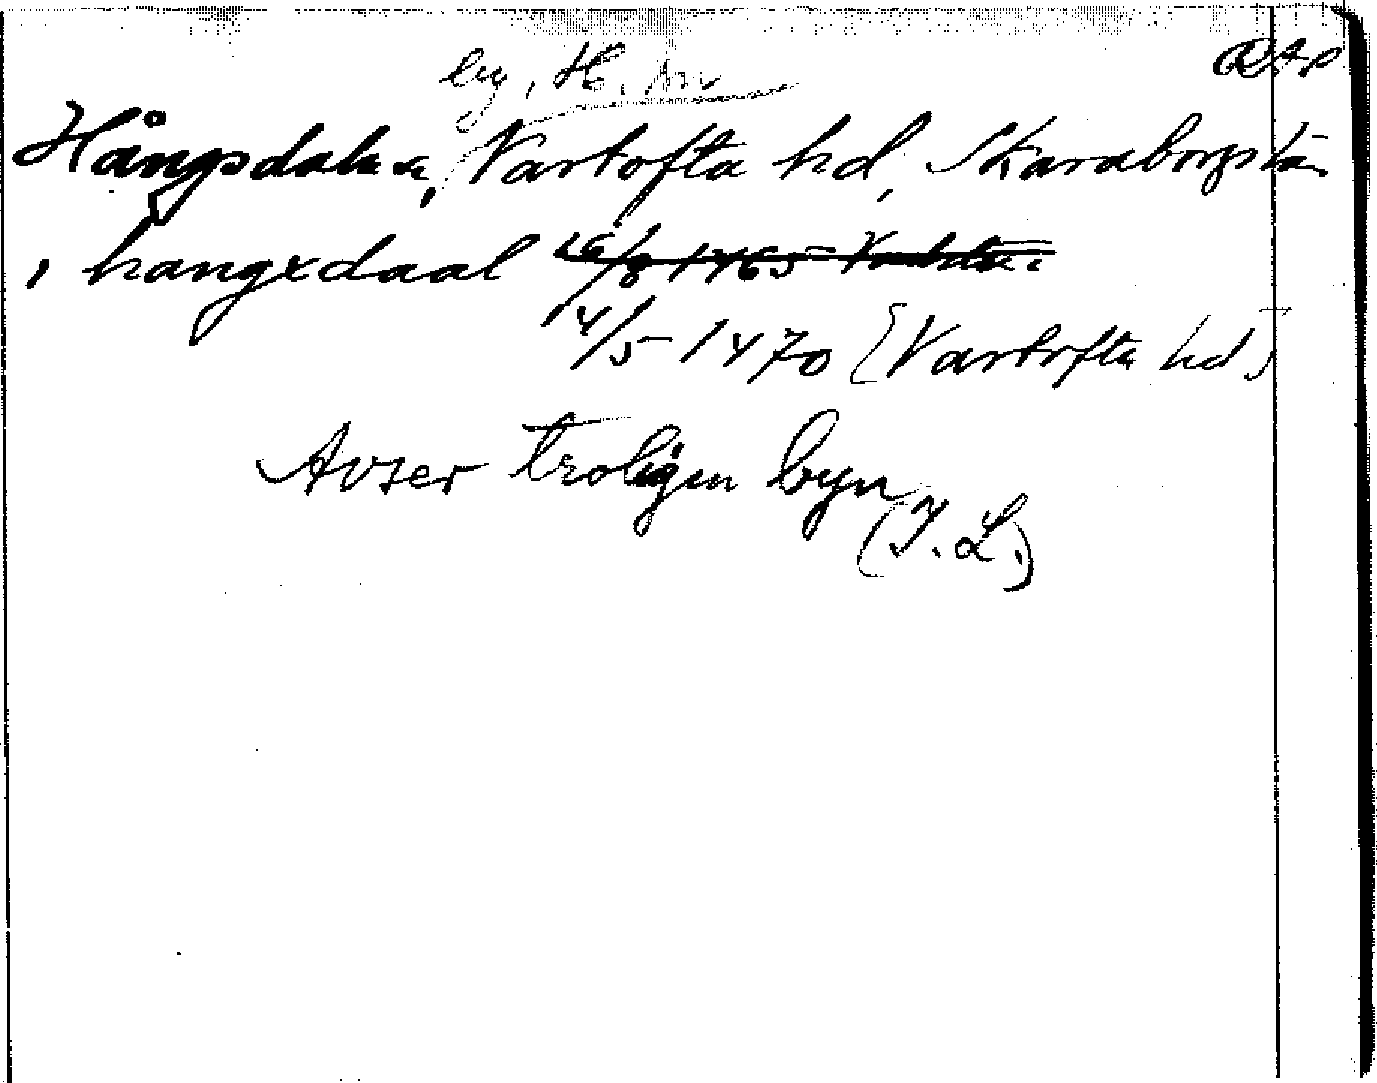 RAP
by, H. sn
Hångsdala, Vartofta hd, Skaraborgs län
i hangxdaal 26/8 1465 Vartofta
14/5 1470 (Vartofta hd)
Avser troligen byn
(I. L.)